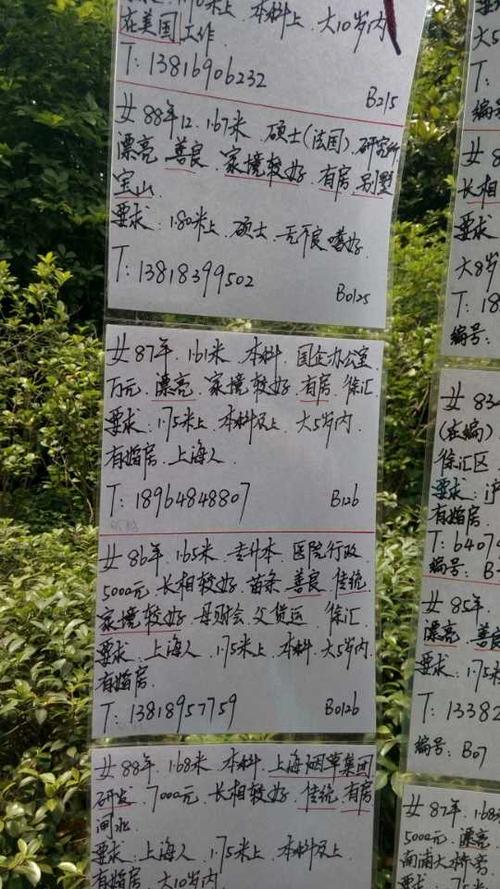 1.70米上 本科上 大10岁内
在美国工作
T:13816906232
B215
女88年12.1.67米 硕士(法国).研究所
漂亮 善良 家境较好 有房 别墅
宝山
要求:1.80米上.硕士.无不良嗜好
T:13818399502
B0125
女87年.1.61米 本科 国企办公室
万元.漂亮.家境较好.有房.徐汇
要求:1.75米上.本科及上.大5岁内
有婚房.上海人
T:18964848807
B126
女86年.1.65米.专升本.医院行政
5000元.长相较好.苗条.善良.传统
家境较好.母财会.父货运.徐汇
要求:上海人.1.75米上.本科.大5岁内
有婚房.
T:13818957759
B0126
女88年.1.68米.本科.上海烟草集团
研发.7000元.长相较好.传统.有房
闸北
要求:上海人.1.75米上.本科及上
有婚房.大10岁内
要求
大5
编号
女8
长相
要求
大8岁
T:18
编号:
女834
(在编)
徐汇区
要求:沪
有婚房
T:6407
编号:B
女85年.
漂亮 善良
要求:1.75米
T:13382
编号:B07
女87年.1.68
5000元.漂亮
南浦大桥旁
要求: